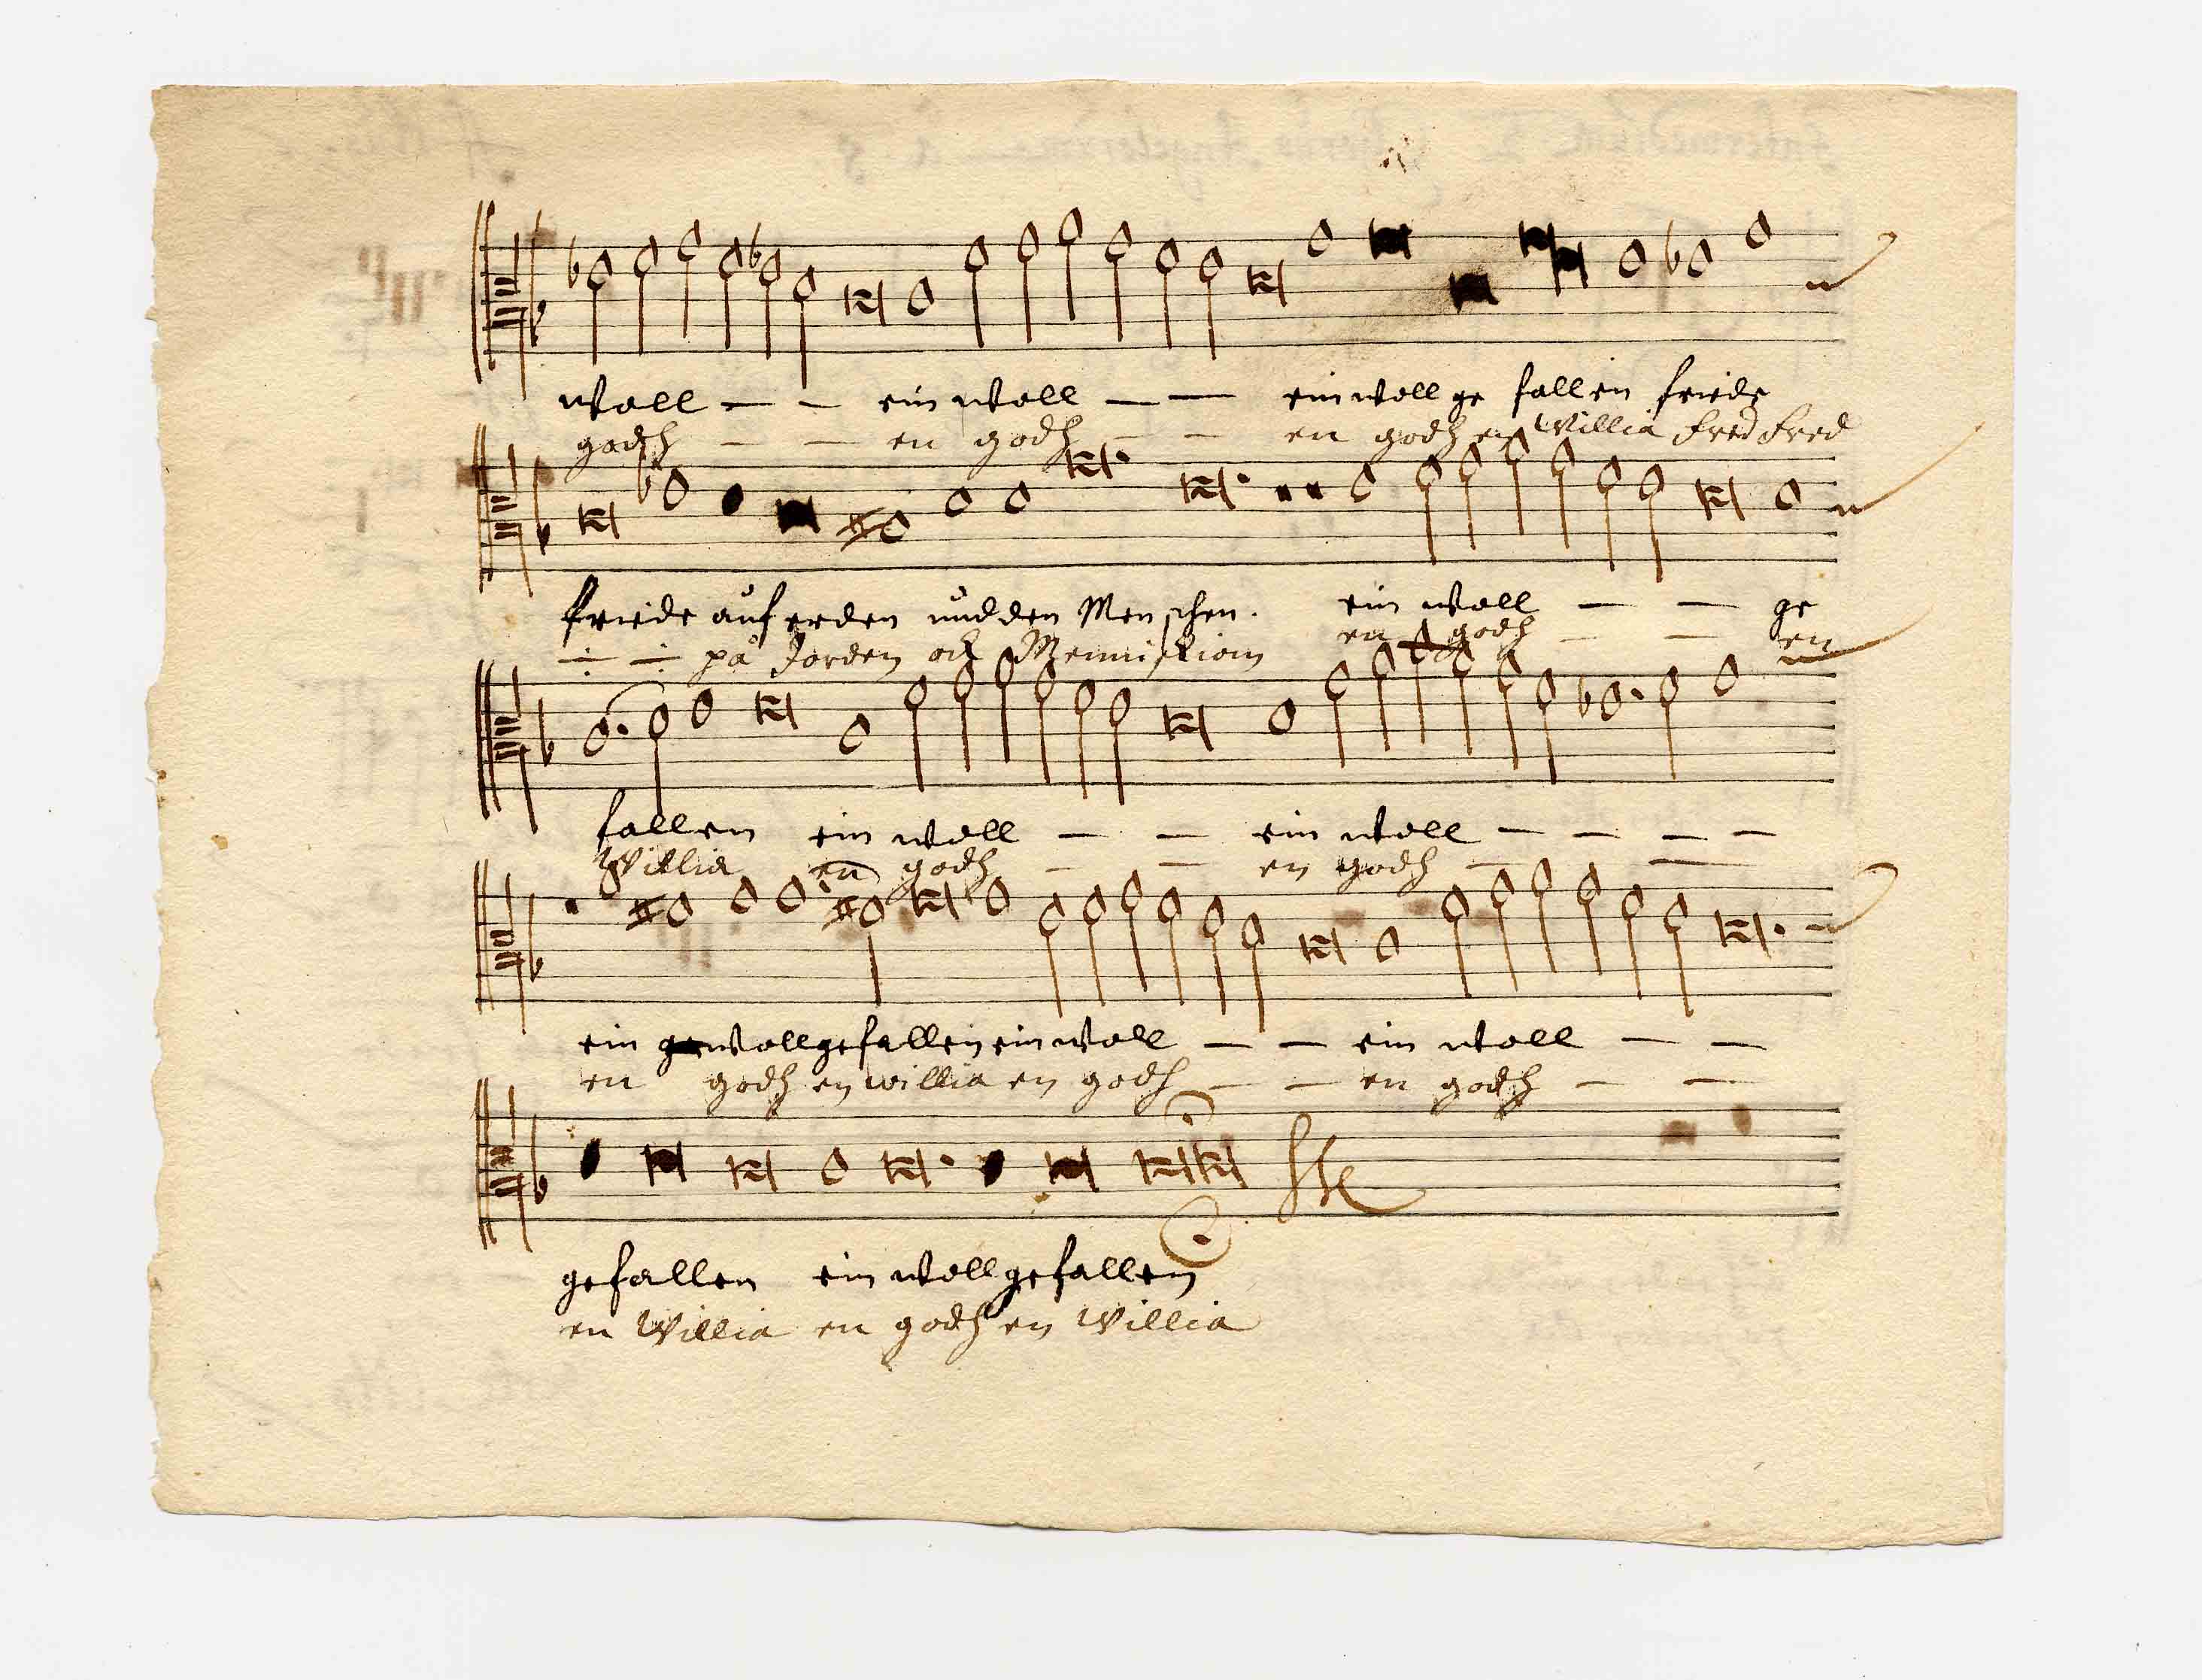 woll — — ein woll — — ein woll ge fallen friede
godh — — en godh — — en godh en Willia Fred Fred
friede auf erden und den Menschen. ein woll — — ge
÷ ÷ på Jorden och Menniskiom en godh — — en
fallen ein woll — — ein woll — — — —
Willia en godh — — en godh — —
ein wollgefallen ein woll — — ein woll — —
en godh en willia en godh — — en godh — —
gefallen ein wollgefallen
en Willia en godh en Willia